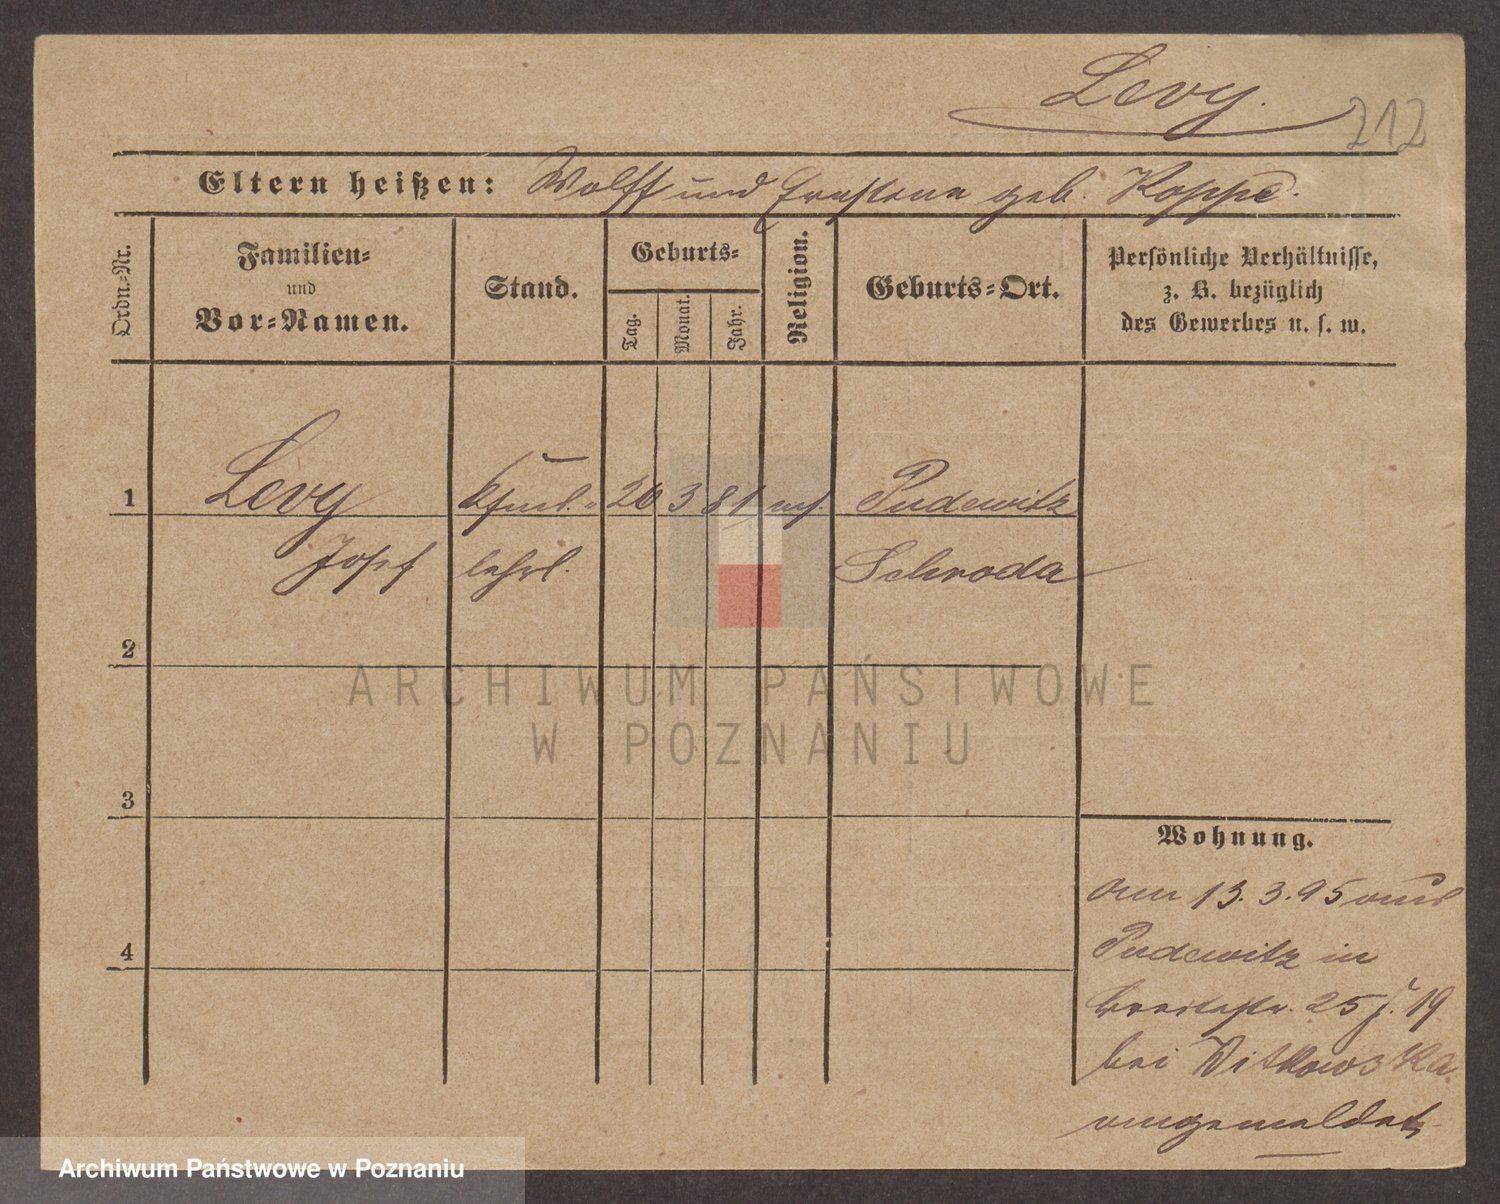 Levy.
212
Eltern heißen: Wolff und Ernestine geb. Koppe.
Ordn.-Nr.
Familien-
und
Vor-Namen.
Stand.
Geburts-
Tag.
Monat.
Jahr.
Religion.
Geburts-Ort.
Persönliche Verhältnisse,
z. B. bezüglich
des Gewerbes u. s. w.
1
Levy
26 3 81 mos.
Pudewitz
Josef
lehrl.
Schroda
2
3
4
ARCHIWUM PAŃSTWOWE
W POZNANIU
Wohnung.
am 13.3.95 aus
Pudewitz in
Breitestr. 25 J. 19
bei Witkowska
angemeldet
Archiwum Państwowe w Poznaniu